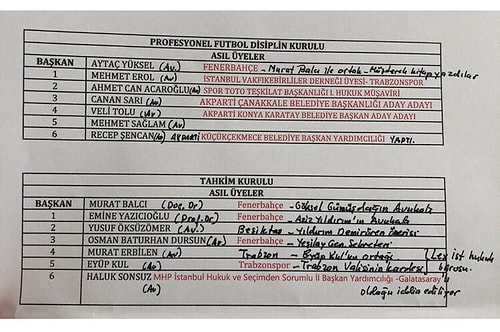 PROFESYONEL FUTBOL DİSİPLİN KURULU
ASIL ÜYELER
BAŞKAN AYTAÇ YÜKSEL (Av.) FENERBAHÇE - Murat Balcı ile ortak - Müşterek kitap yazdılar
1 MEHMET EROL (Av) İSTANBUL VAKIFEKBİRLİLER DERNEĞİ ÜYESİ- TRABZONSPOR
2 AHMET CAN ACAROĞLU (Av) SPOR TOTO TEŞKİLAT BAŞKANLIĞI I. HUKUK MÜŞAVİRİ
3 CANAN SARI (Av) AKPARTİ ÇANAKKALE BELEDİYE BAŞKANLIĞI ADAY ADAYI
4 VELİ TOLU (Av) AKPARTİ KONYA KARATAY BELEDİYE BAŞKANI ADAY ADAYI
5 MEHMET SAĞLAM (Av)
6 RECEP ŞENCAN (Av) AKPARTİ KÜÇÜKÇEKMECE BELEDİYE BAŞKAN YARDIMCILIĞI YAPTI.
TAHKİM KURULU
ASIL ÜYELER
BAŞKAN MURAT BALCI (Doç. Dr) Fenerbahçe - Göksel Gümüşdağın Avukatı
1 EMİNE YAZICIOĞLU (Prof. Dr.) Fenerbahçe - Aziz Yıldırım'ın Avukatı
2 YUSUF ÖKSÜZÖMER (Av.) Beşiktaş - Yıldırım Demirören
3 OSMAN BATURHAN DURSUN (Av) Fenerbahçe - Yeşilay Gen. Sekreteri
4 MURAT ERBİLEN (Av) Trabzon - Eyüp Kul'un ortağı (Lex ist hukuk
5 EYÜP KUL (Av) Trabzonspor - Trabzon Valisinin kardeşi bürosu.
6 HALUK SONSUZ MHP İstanbul Hukuk ve Seçimden Sorumlu İl Başkan Yardımcılığı -Galatasaray'lı
(Av) olduğu iddia ediliyor